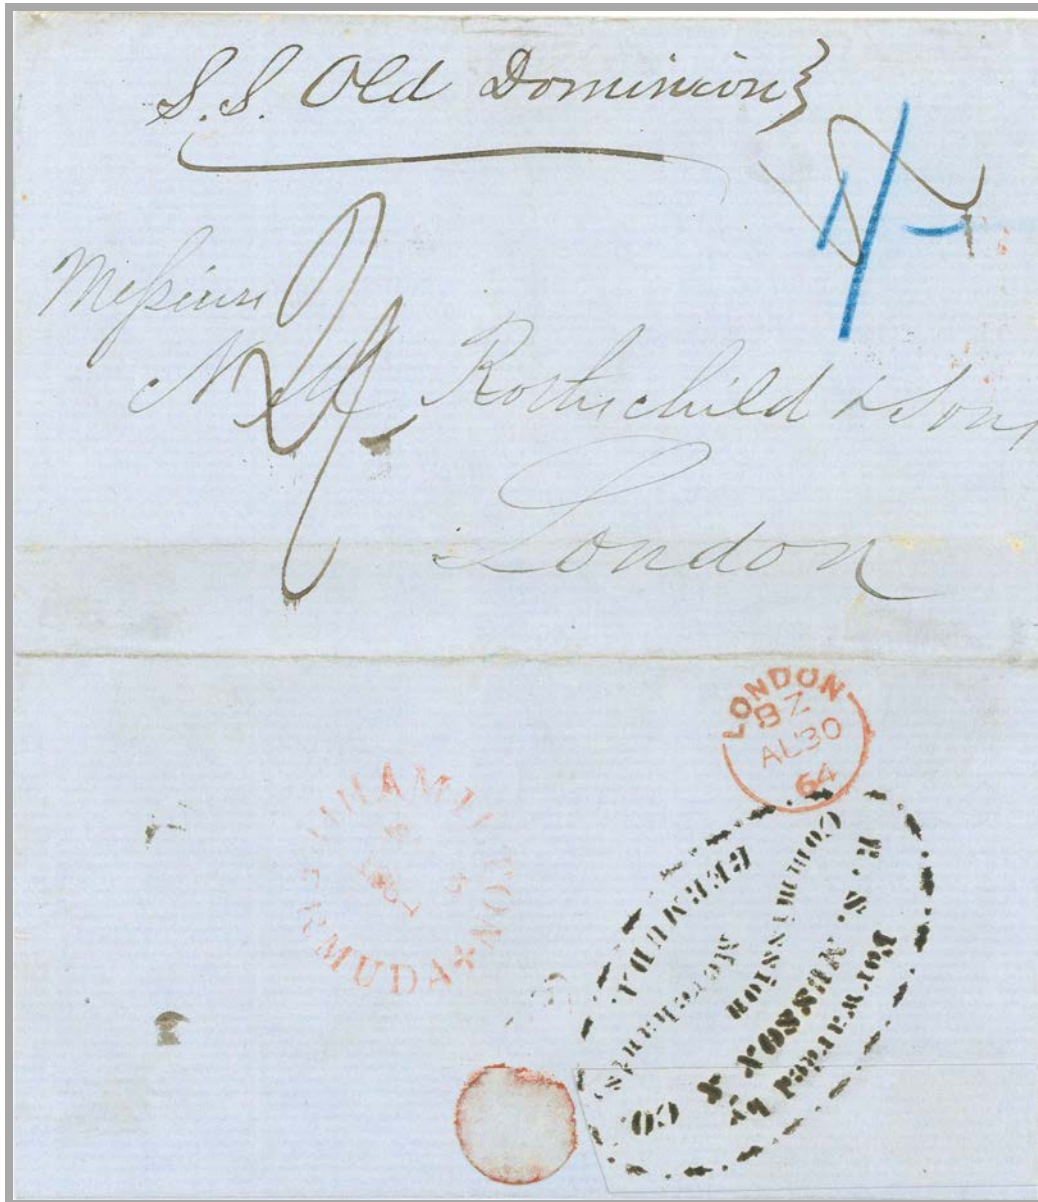 S.S. Old Dominion}
1/-
Messieurs
N M Rothschild & Sons
London
LONDON
BZ
AU30
64
HAMILTON
BERMUDA
Forwarded by
R. S. MUSSON & CO
Commission
Merchants
BERMUDA.